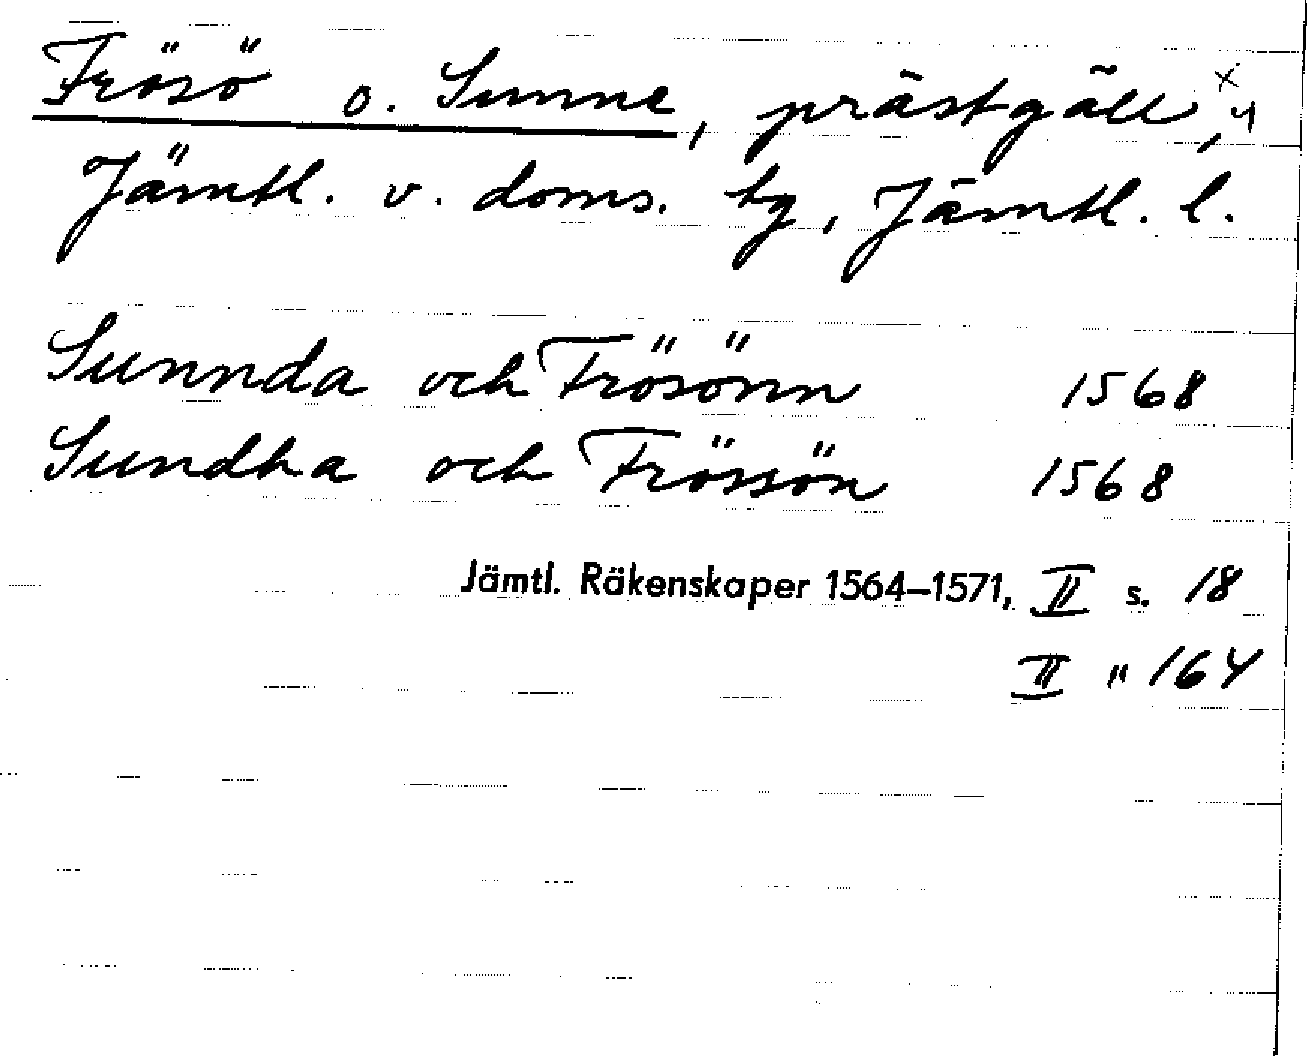 Frösö o. Sunne, prästgäll, x 4
Jämtl. v. doms. tg, Jämtl. l.
Sunnda och Frösönn 1568
Sundha och Frössön 1568
Jämtl. Räkenskaper 1564–1571, II s. 18
II " 164